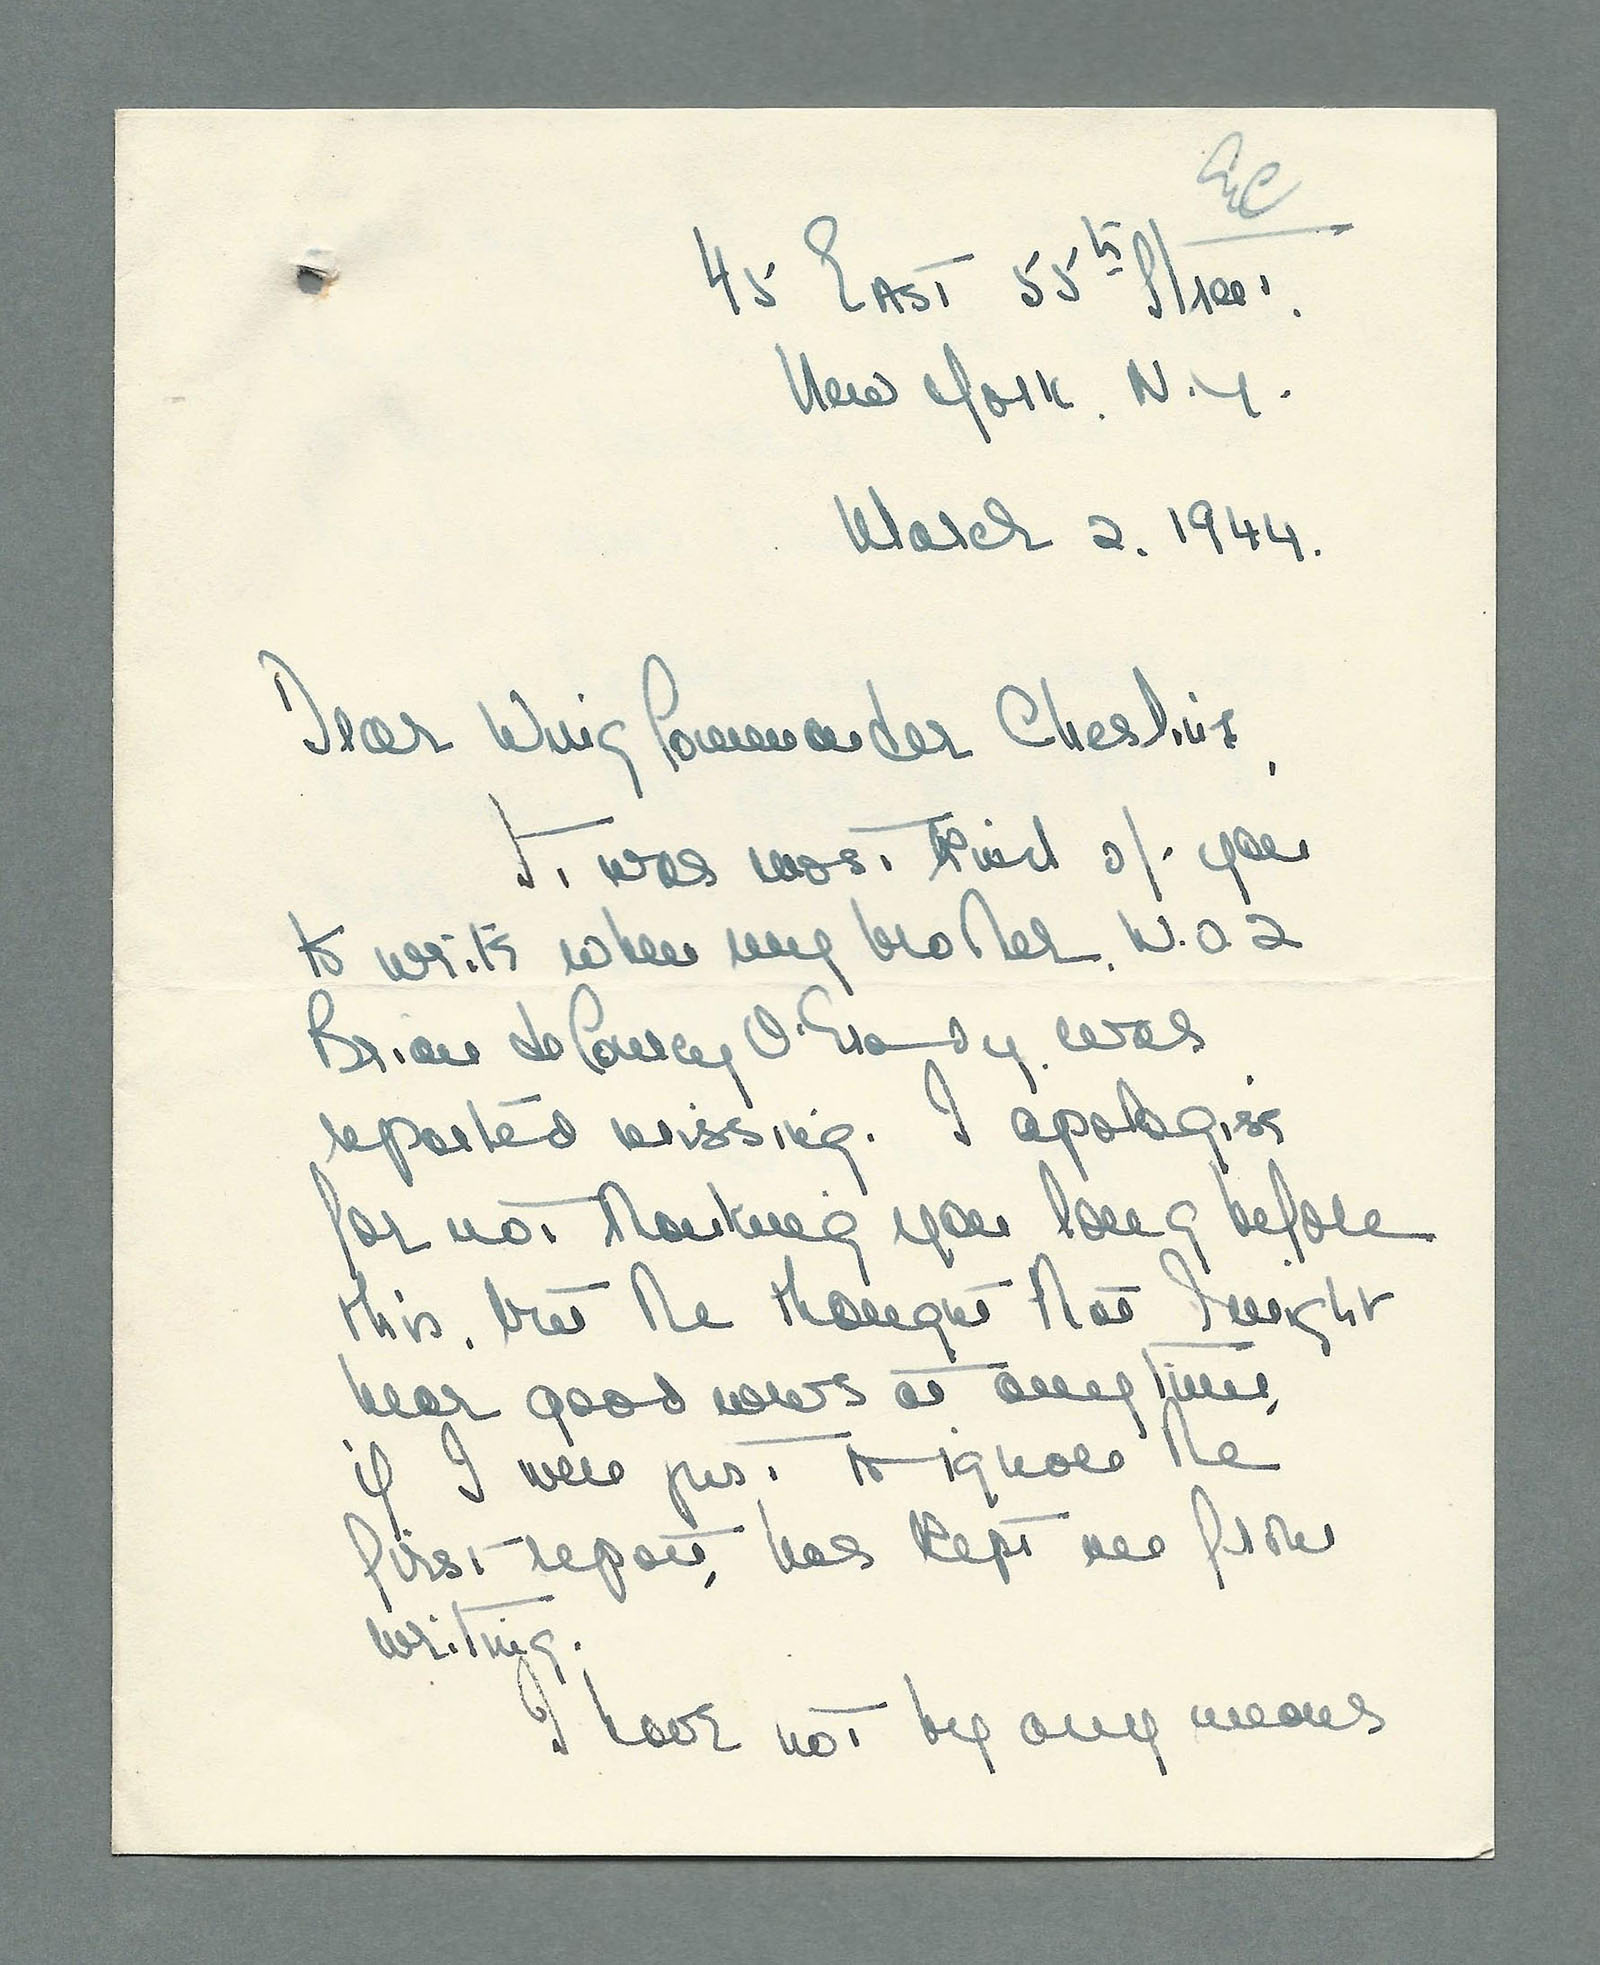 45 East 55th Street.
New York. N.Y.
March 2. 1944.
Dear Wing Commander Cheshire,
It was most kind of you
to write when my brother, W.O.2
Brian de Courcy O'Grady, was
reported missing. I apologise
for not thanking you long before
this, but the thought that I might
hear good news at any time,
if I were just to ignore the
first report, has kept me from
writing.
I have not by any means